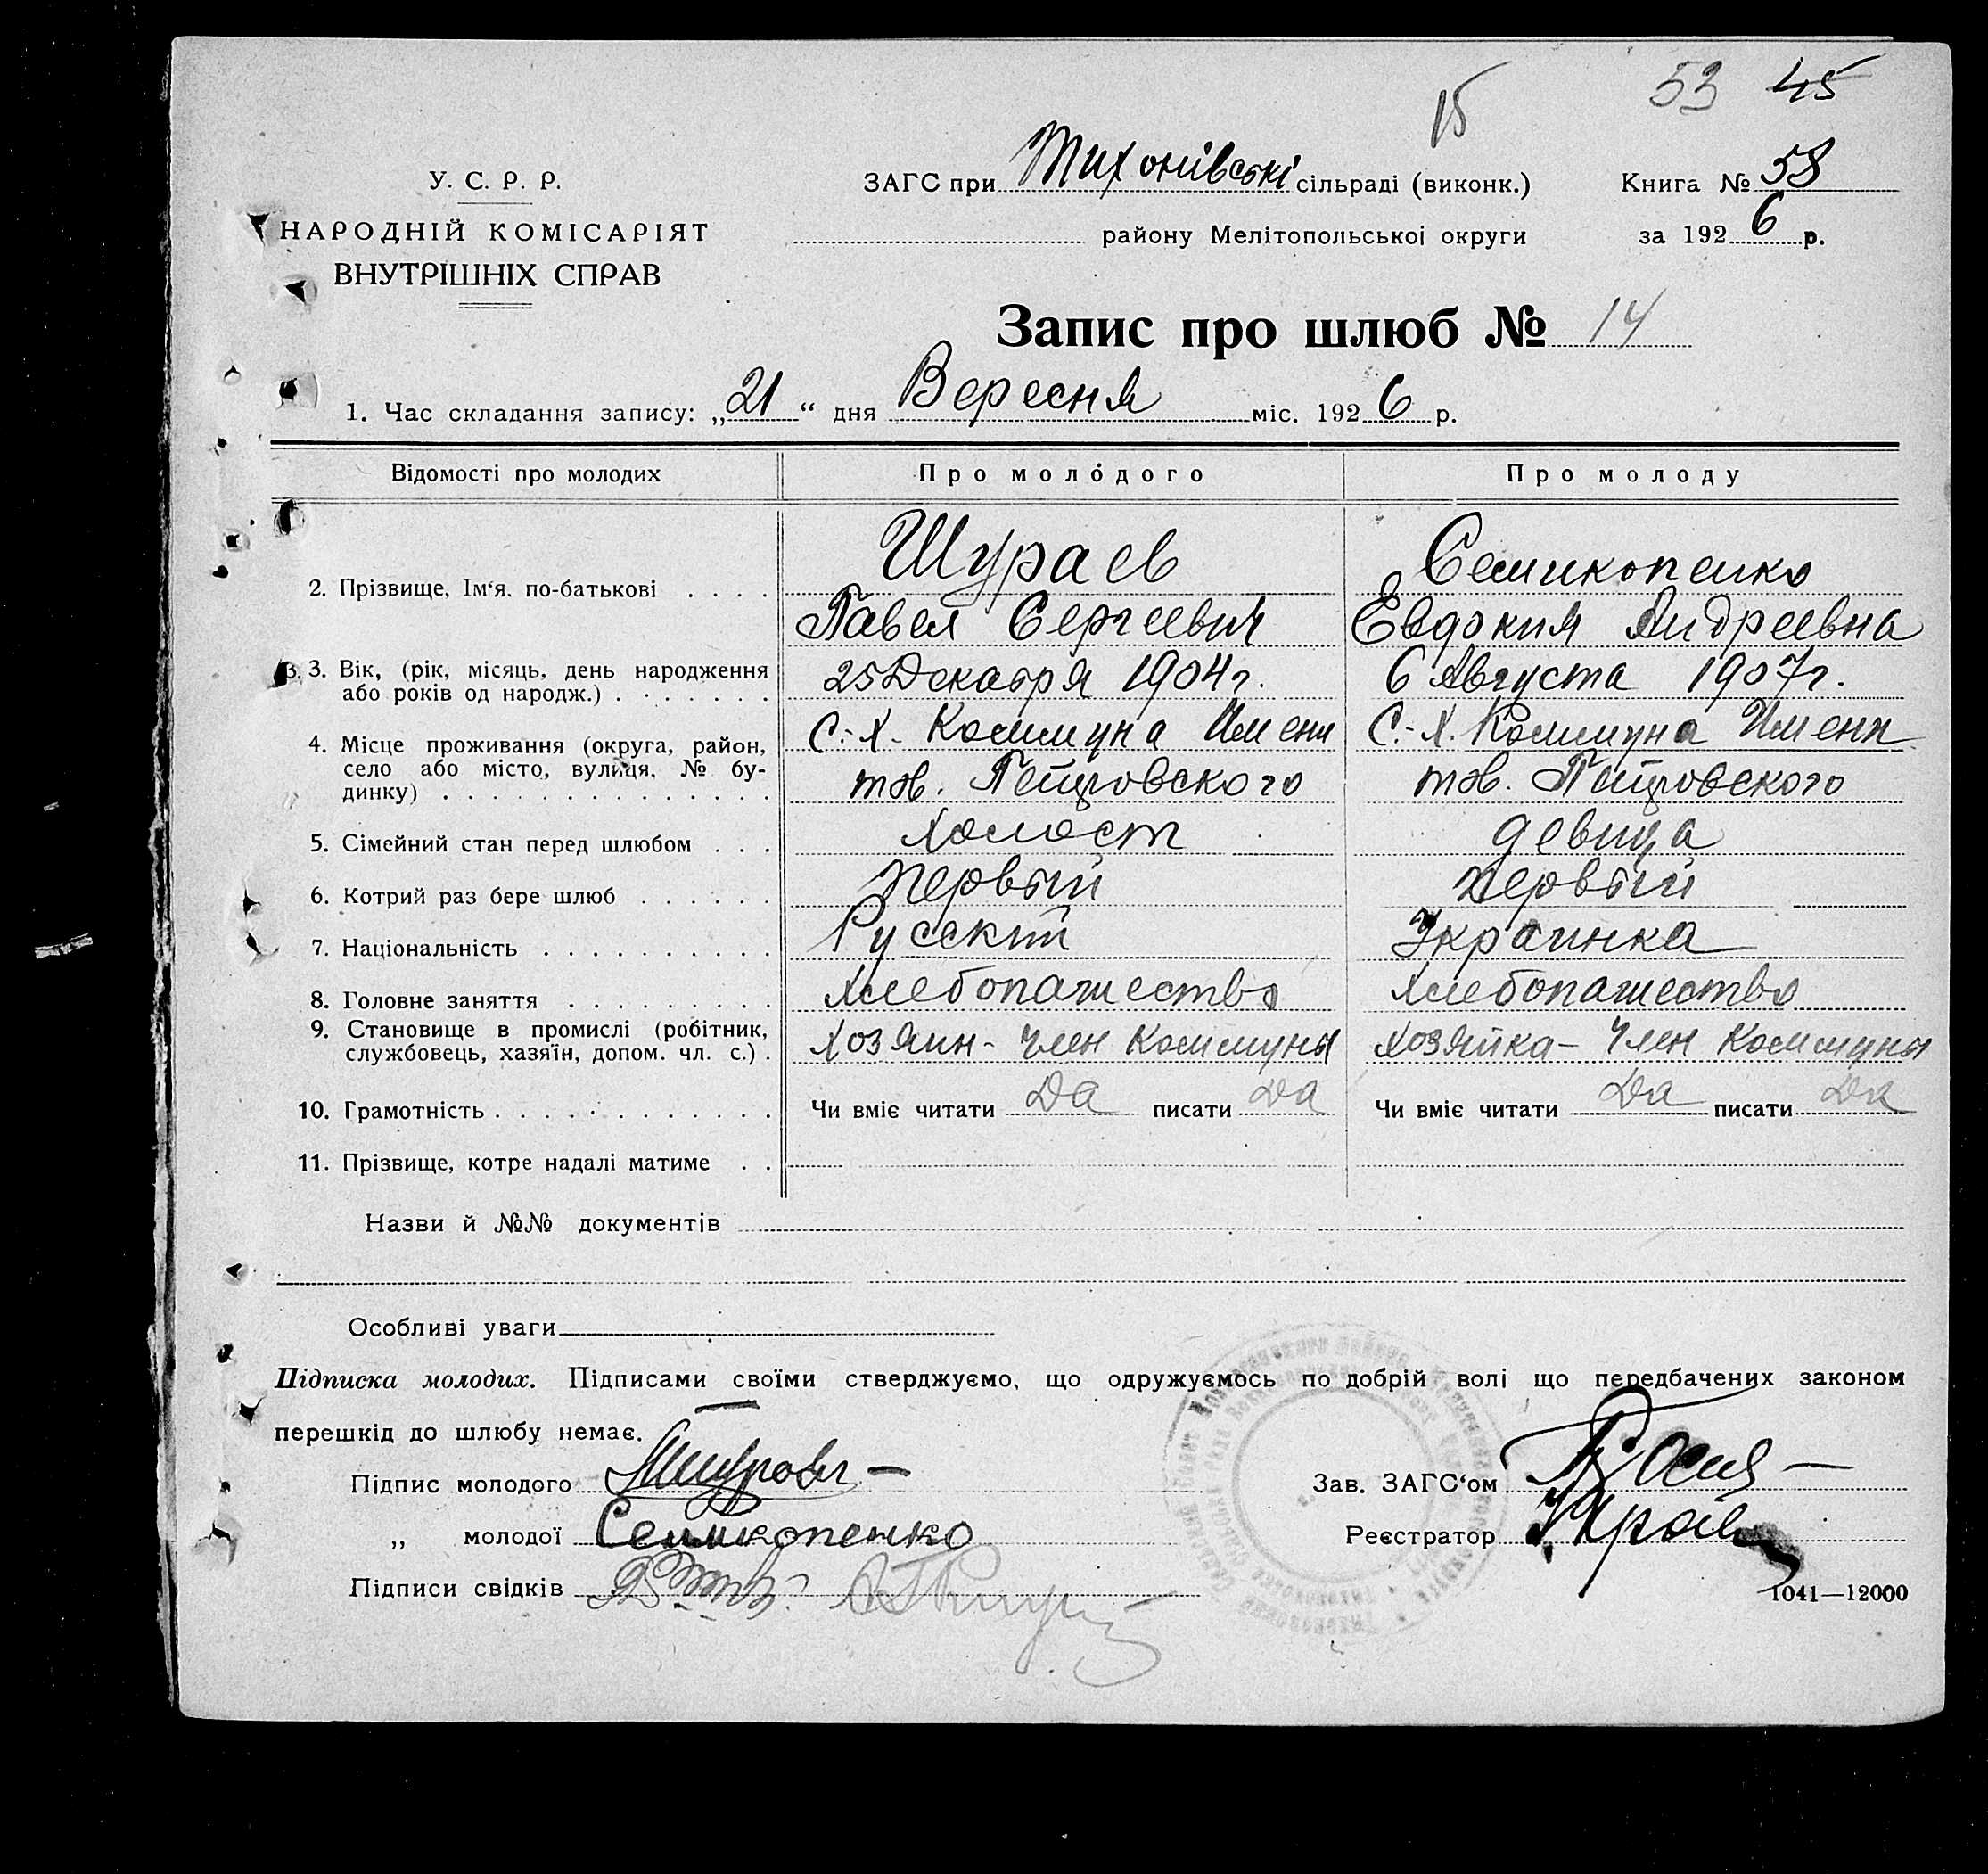 53 45
15
У. С. Р. Р.
НАРОДНІЙ КОМІСАРІЯТ
ВНУТРІШНІХ СПРАВ
ЗАГС при Тихонівські сільраді (виконк.)
району Мелітопольської округи
Книга № 58
за 1926 р.
Запис про шлюб № 14
1. Час складання запису: „21“ дня Вересня міс. 1926 р.
Відомості про молодих Про молóдого Про молоду
2. Прізвище, Ім‘я, по-батькові . . . . Шураев Семикопенко
Павел Сергеевич Евдокия Андреевна
3. Вік, (рік, місяць, день народження 25 Декабря 1904 г. 6 Августа 1907 г.
або років од народж.) . . . . . . .
4. Місце проживання (округа, район, С.-Х. Коммуна Имени С.-Х. Коммуна Имени
село або місто, вулиця, № бу-
динку) . . . . . . . . . . . . . . тов. Петровского тов. Петровского
5. Сімейний стан перед шлюбом . . . Холост девица
6. Котрий раз бере шлюб . . . . . . Первый Первый
7. Національність . . . . . . . . . . Русский Украинка
8. Головне заняття . . . . . . . . . Хлебопашество Хлебопашество
9. Становище в промислі (робітник,
службовець, хазяїн, допом. чл. с.) . Хозяин - Член Коммуны Хозяйка - Член Коммуны
10. Грамотність . . . . . . . . . . . . Чи вміє читати Да писати Да Чи вміє читати Да писати Да
11. Прізвище, котре надалі матиме . .
Назви й №№ документів
Особливі уваги
Підписка молодих. Підписами своїми стверджуємо, що одружуємось по добрій волі що передбачених законом
перешкід до шлюбу немає.
Підпис молодого
Зав. ЗАГС‘ом
„ молодої Семикопенко
Реєстратор
Підписи свідків
1041—12000